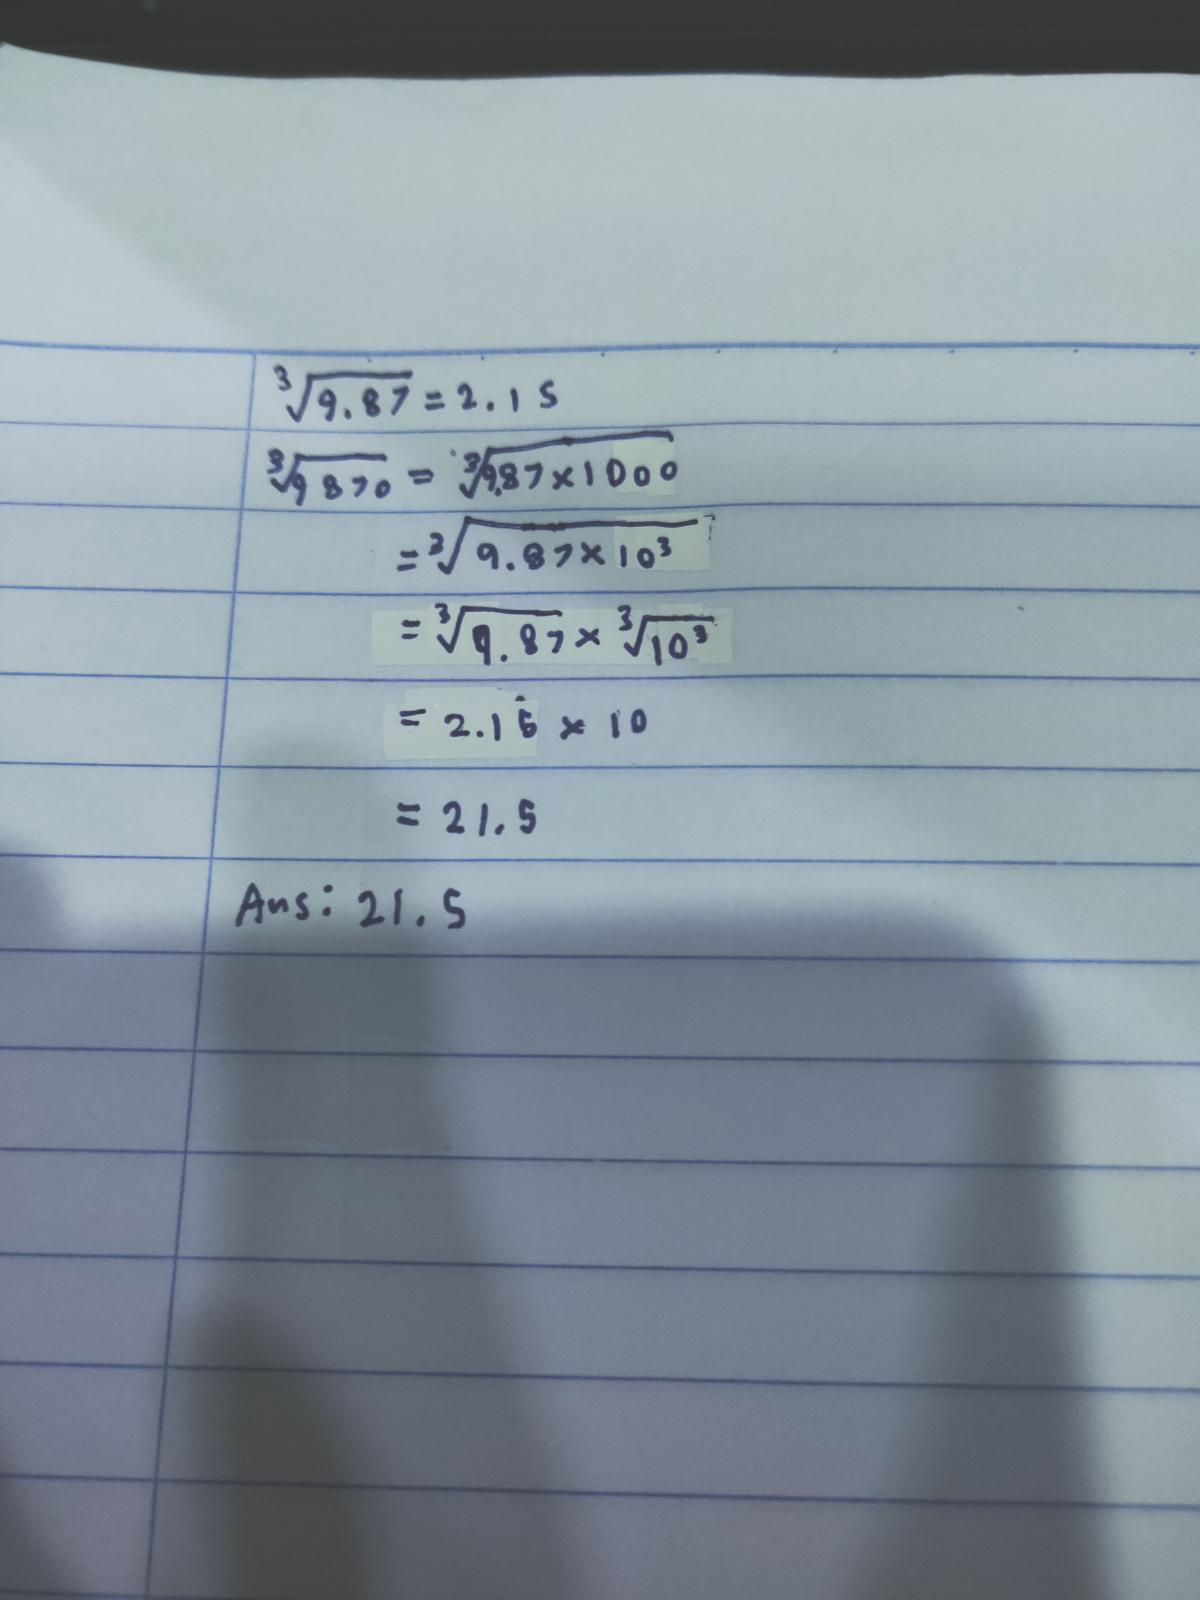 ∛9.87 = 2.15
∛9870 = ∛9.87 × 1000
= ∛9.87 × 10³
= ∛9.87 × ∛10³
= 2.15 × 10
= 21.5
Ans: 21.5